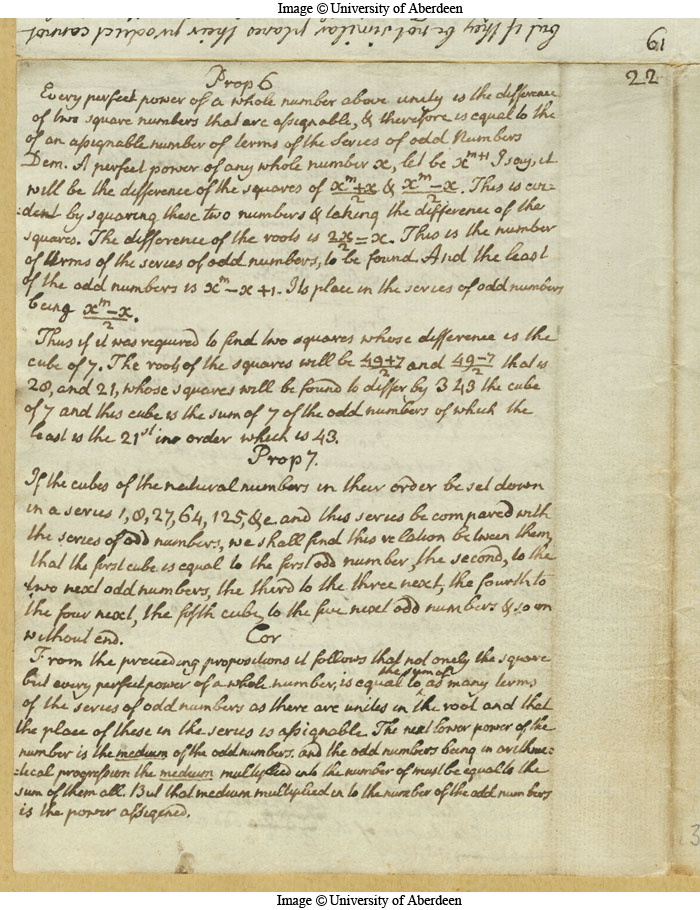 Image © University of Aberdeen
but if they be not similar planes their product cannot
61
22
Prop 6
Every perfect power of a whole number above unity is the difference
of two square numbers that are assignable, & therefore is equal to the
of an assignable number of terms of the Series of odd Numbers
Dem. A perfect power of any whole number x, let be x^m+1 I say, it
will be the difference of the squares of x^m+x/2 & x^m-x/2. This is evi-
dent by squaring these two numbers & taking the difference of the
squares. The difference of the roots is 2x/2 = x. This is the number
of terms of the series of odd numbers, to be found. And the least
of the odd numbers is x^m - x + 1. Its place in the series of odd numbers
being x^m-x/2.
Thus if it was required to find two squares whose difference is the
cube of 7. The roots of the squares will be 49+7/2 and 49-7/2 that is
28, and 21, whose squares will be found to differ by 343 the cube
of 7 and this cube is the sum of 7 of the odd numbers of which the
least is the 21st in order which is 43.
Prop 7.
If the cubes of the natural numbers in their order be set down
in a series 1, 8, 27, 64, 125, &c. and this series be compared with
the series of odd numbers, we shall find this relation between them,
that the first cube is equal to the first odd number, the second, to the
two next odd numbers, the third to the three next, the fourth to
the four next, the fifth cube, to the five next odd numbers & so on
without end. Cor
From the preceeding propositions it follows that not onely the square
but every perfect power of a whole number, is equal to the sum of as many terms
of the series of odd numbers as there are unites in the root and that
the place of these in the series is assignable. The next lower power of the
number is the medium of the odd numbers. and the odd numbers being in arithme-
-tical progression the medium multiplied into the number of must be equal to the
sum of them all. But that medium multiplied in to the number of the odd numbers
is the power assigned.
3
Image © University of Aberdeen